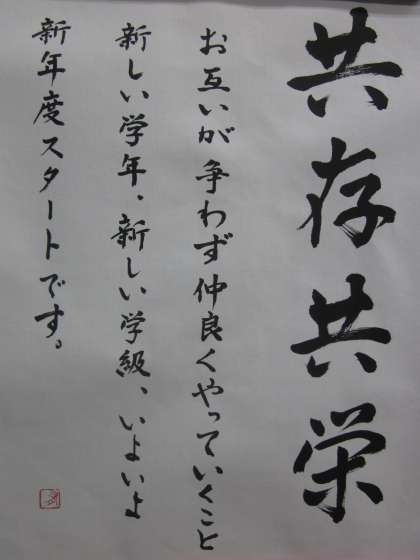 共存共栄
お互いが争わず仲良くやっていくこと
新しい学年、新しい学級、いよいよ
新年度スタートです。